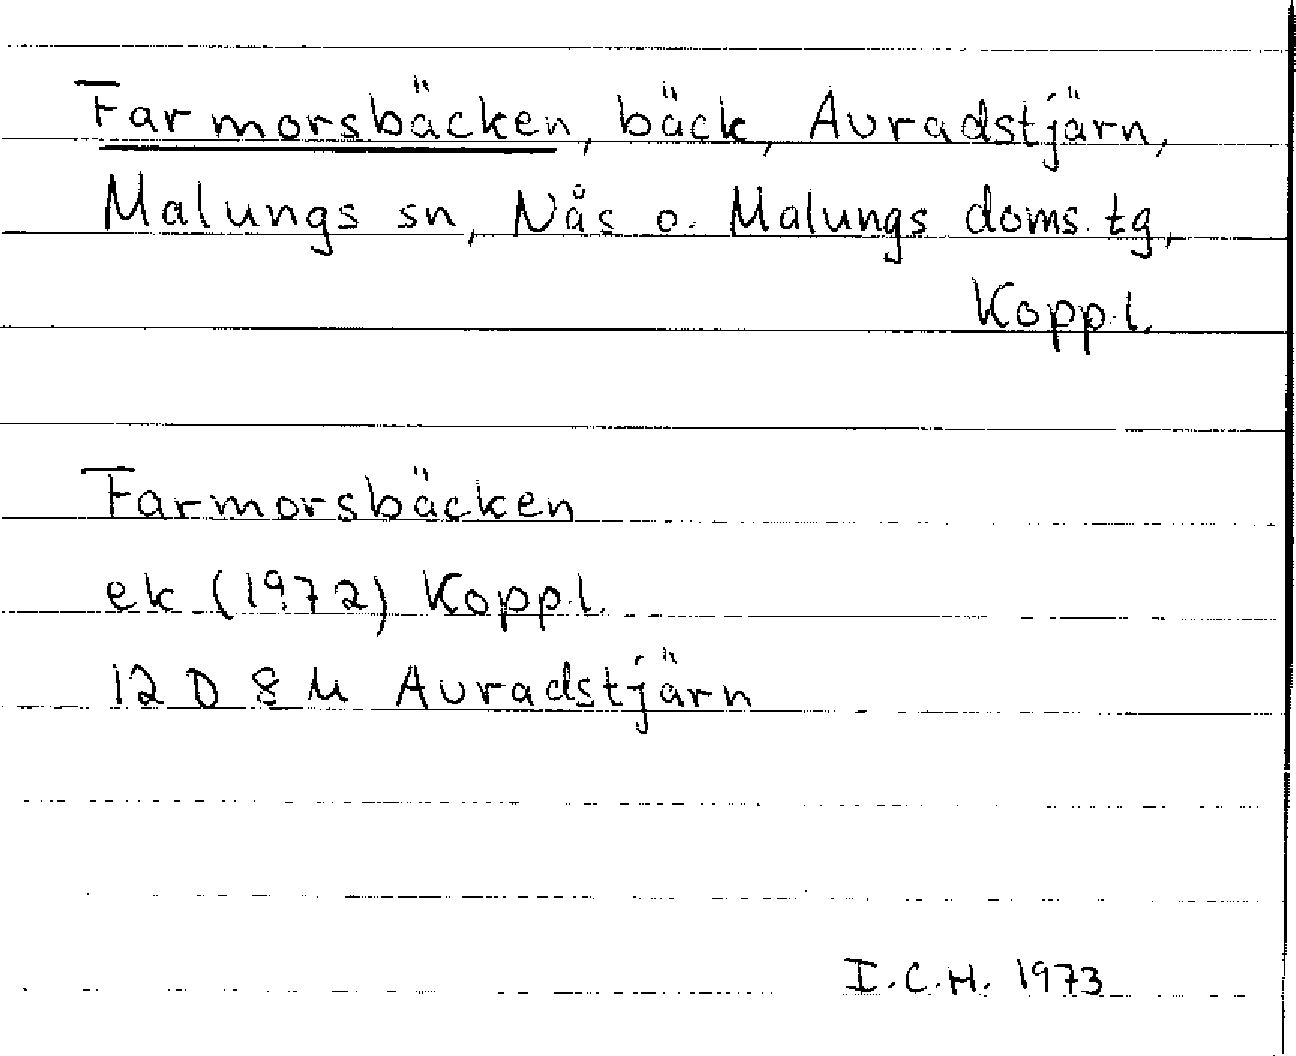 Farmorsbäcken, bäck, Auradstjärn,
Malungs sn, Nås o. Malungs doms. tg,
Kopp.l.
Farmorsbäcken
ek (1972) Kopp.l.
12 D 8 M Auradstjärn
I.C.H. 1973